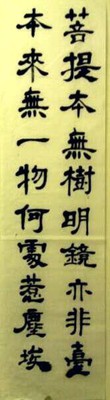 菩提本無樹明鏡亦非臺
本來無一物何處惹塵埃